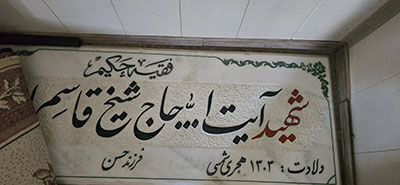 فقیه حکیم
شهید آیت الله حاج شیخ قاسم
ولادت: ۱۳۰۳ هجری شمسی فرزند حسن